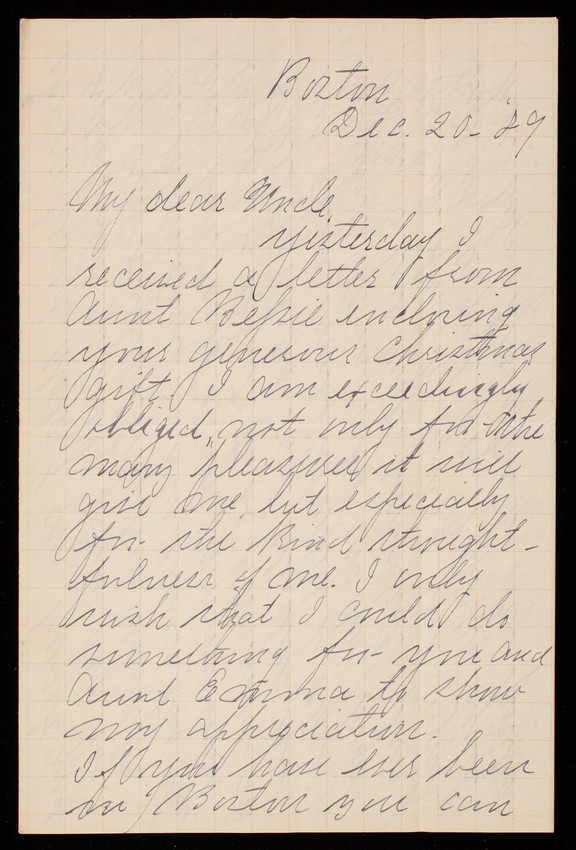 Boston
Dec. 20 - '89
My dear Uncle,
yesterday I
received a letter from
Aunt Bessie enclosing
your generous Christmas
gift. I am exceedingly
obliged, not only for the
many pleasures it will
give me, but especially
for the kind thought-
fulness of me. I only
wish that I could do
something for you and
Aunt Emma to show
my appreciation.
If you have ever been
in Boston you can